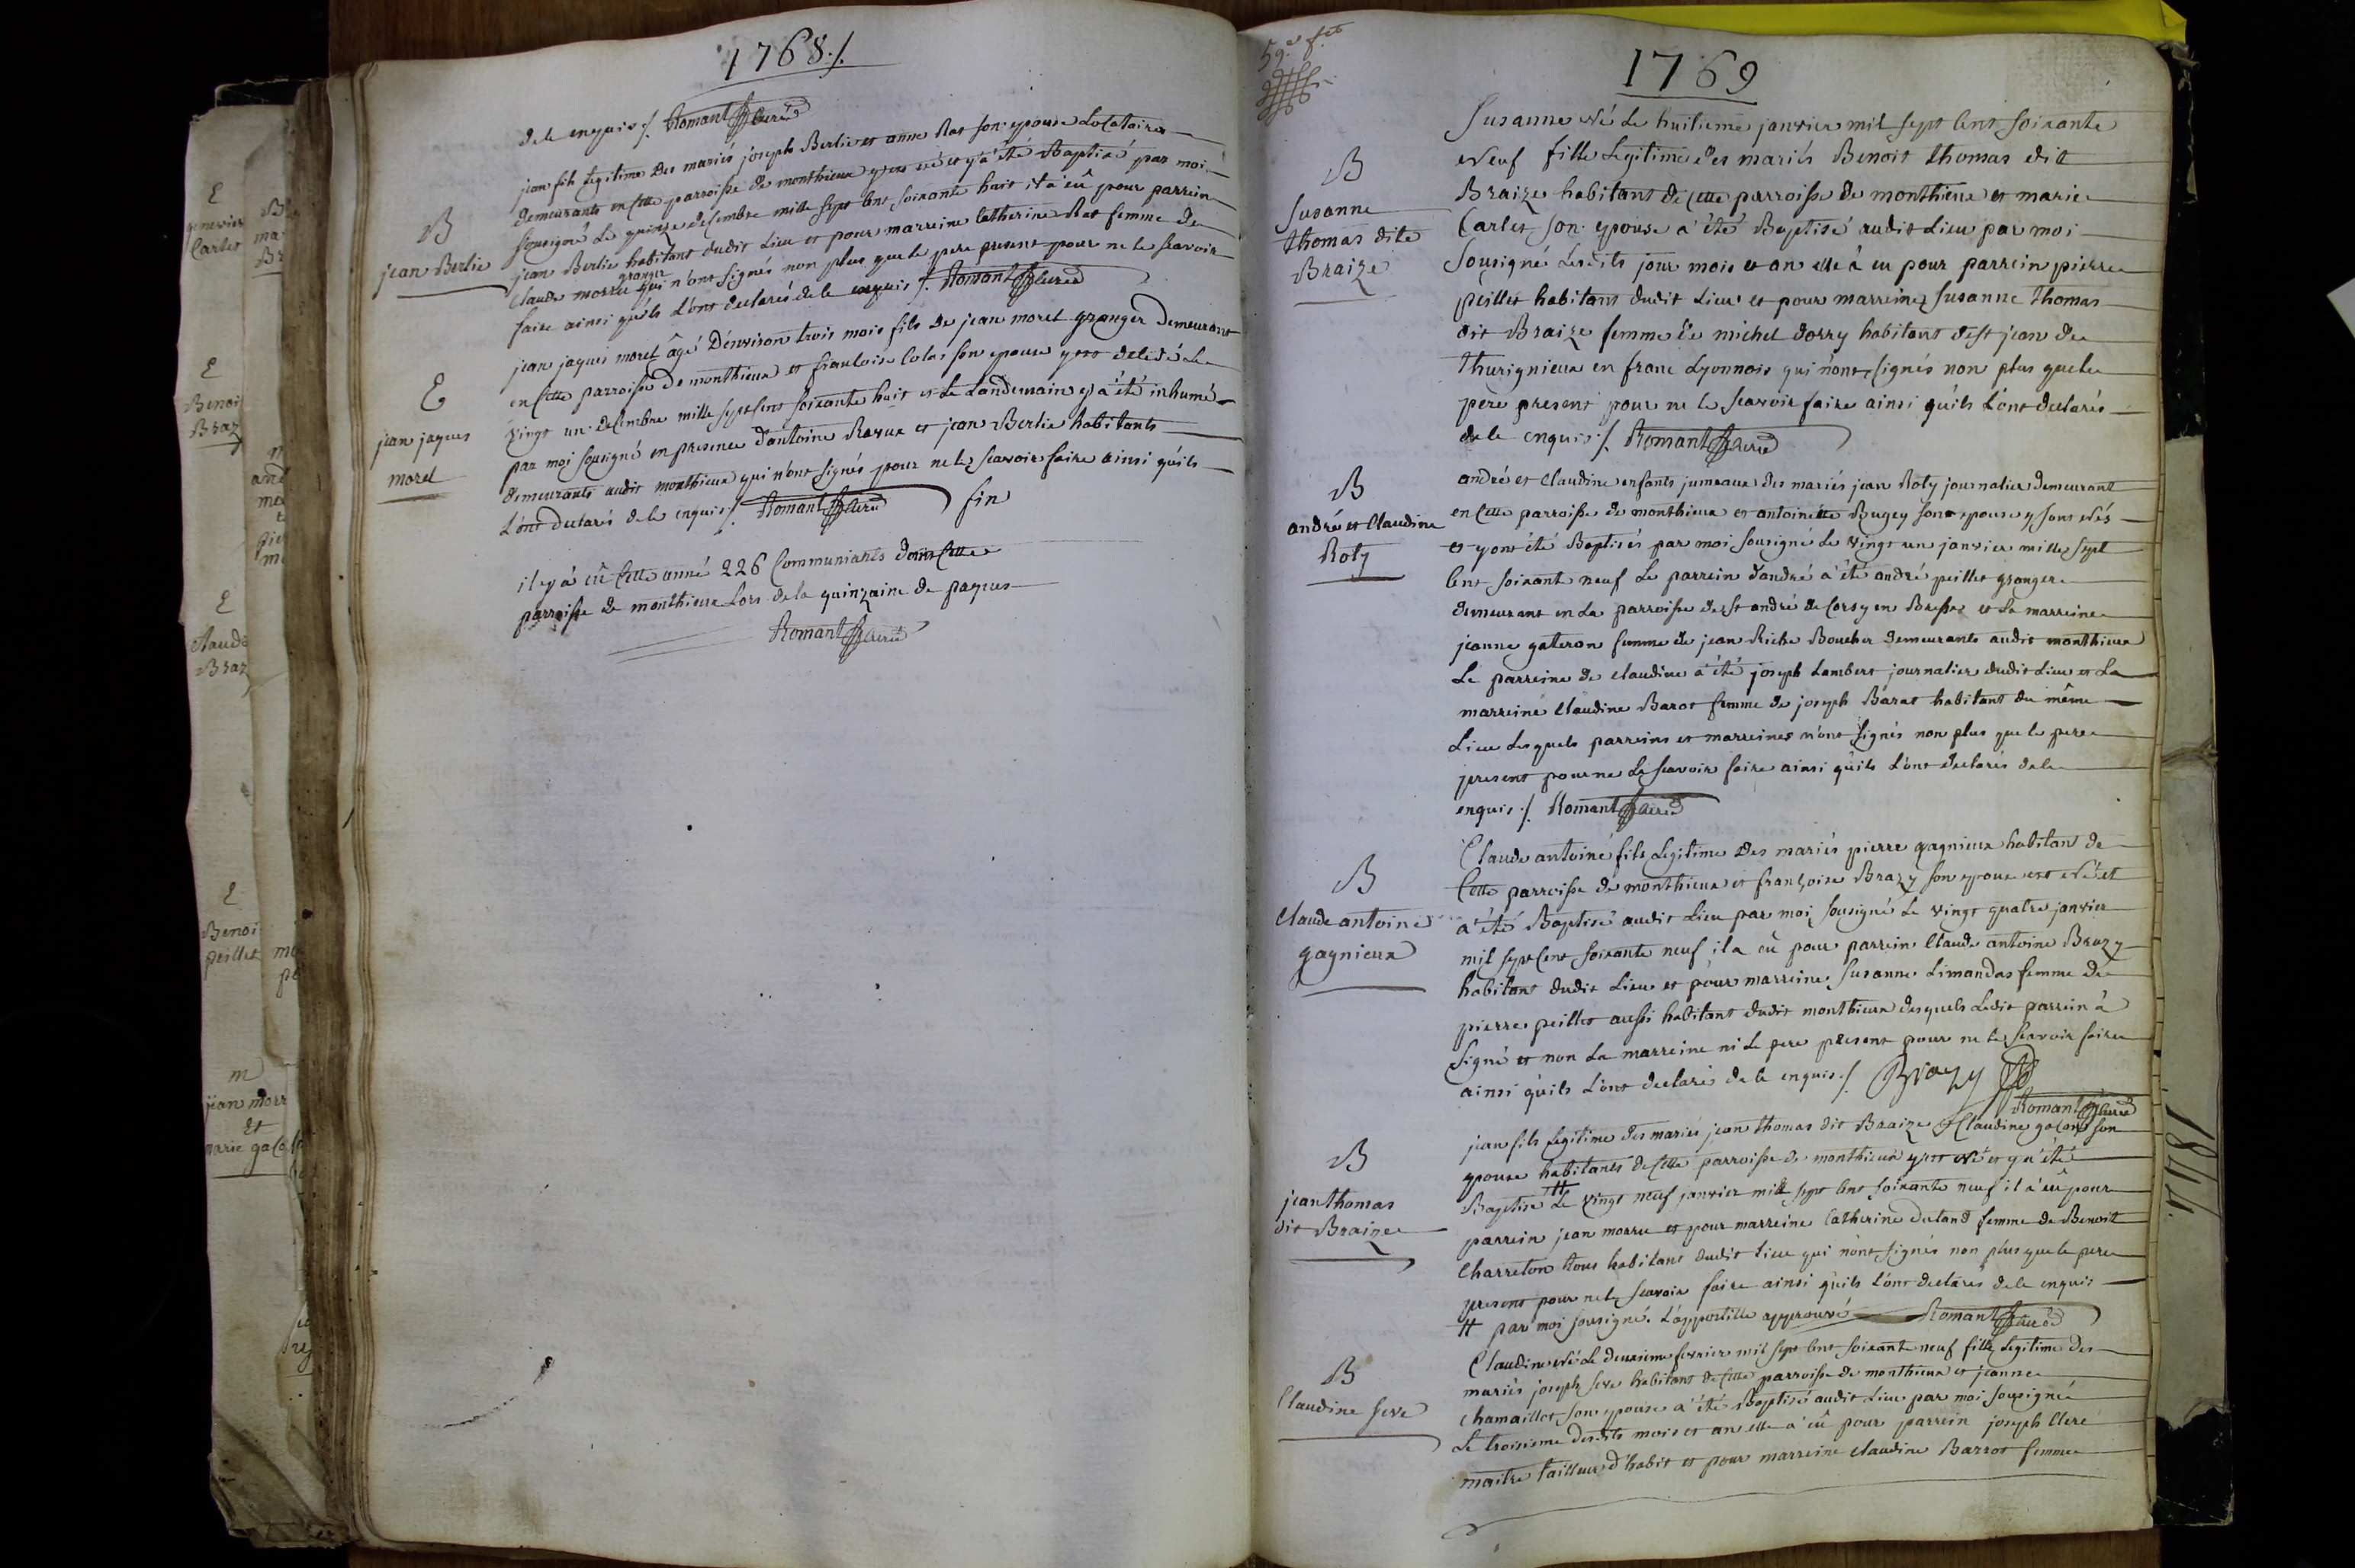 1768 ./.
de le enquis ./. Romant Curé
B
jean Berlie
jean fils legitime des mariés joseph Berlie et anne Rat son epouse Locataires
demeurants en cette parroisse de monthieux y est né et y a été Baptisé par moi
sousigné Le quinze decembre mille sept cent soixante huit il a eû pour parrein
jean Berlie habitant dudit Lieu et pour marreine Catherine Rat femme de
granger
Claude morru qui n'ont signés non plus que le pere present pour ne le scavoir
faire ainsi qu'ils L'ont declarés de le enquis ./. Romant Curé
E
jean jaques
morel
jean jaques morel âgé D'environ trois mois fils de jean morel granger demeurant
en cette parroisse de monthieux et francoise Colas son epouse y est decedé Le
vingt un decembre mille sept cent soixante huit et Le Landemain y a été inhumé
par moi sousigné en presence d'antoine Ravux et jean Berlie habitants
demeurants audit monthieux qui n'ont signés pour ne le scavoir faire ainsi qu'ils
L'ont declarés de le enquis ./. Romant Curé fin
il y a eû cette anné 226 Communiants dans cette
parroisse de monthieux Lors de la quinzaine de paques
Romant Curé
1769
B
Susanne
thomas dite
Braize
Susanne né Le huitieme janvier mil sept cent soixante
neuf fille Legitime des mariés Benoit thomas dit
Braize habitant de cette parroisse de monthieux et marie
Carlet son epouse a été Baptisé audit Lieu par moi
sousigné Lesdits jour mois et an elle a eu pour parrein pierre
peillet habitant dudit Lieu et pour marreine Susanne thomas
dit Braize femme de michel dorry habitant de st jean de
thurignieux en franc Lyonnois qui n'ont signés non plus que le
père present pour ne le scavoir faire ainsi qu'ils L'ont declarés
de le enquis ./. Romant Curé
B
andré et Claudine
Roty
andré et Claudine enfants jumeaux des mariés jean Roty journalier demeurant
en cette parroisse de monthieux et antoinette Bugey son epouse y sont nés
et y ont été Baptisés par moi sousigné Le vingt un janvier mille sept
cent soixante neuf Le parrein d'andré a été andré peillet granger
demeurant en La parroisse de st andré de Corsy en Bresse et La marreine
jeanne gateron femme de jean Riche Boucher demeurants audit monthieux
Le parreine de claudine a été joseph Lambert journalier dudit Lieu et La
marreine Claudine Barot femme de joseph Barat habitant du même
Lieu Lesquels parreins et marreines n'ont signés non plus que le pere
present pour ne Le scavoir faire ainsi qu'ils L'ont declarés de le
enquis ./. Romant Curé
B
Claude antoine
gagnieux
Claude antoine fils Legitime des mariés pierre gagnieux habitant de
Cette parroisse de monthieux et françoise Brazy son epouse est né et
a été Baptisé audit Lieu par moi sousigné Le vingt quatre janvier
mil sept cent soixante neuf il a eû pour parrein Claude antoine Brazy
habitant dudit Lieu et pour marreine Susanne Limandas femme de
pierre peillet aussi habitant dudit monthieux desquels Ledit parrein à
signé et non La marreine ni Le pere present pour ne le scavoir faire
ainsi qu'ils L'ont declaré de le enquis ./. Brazy
Romant Curé
B
jean thomas
dit Braize
jean fils Legitime des mariés jean thomas dit Braize et Claudine galand son
epouse habitants de cette parroisse de monthieux y est né et y a été
Baptisé # Le vingt neuf janvier mil sept cent soixante neuf il a eû pour
parrein jean morru et pour marreine Catherine dutand femme de Benoit
Charreton tous habitant dudit Lieu qui n'ont signés non plus que le pere
present pour ne le scavoir faire ainsi qu'ils L'ont declarés de le enquis
# par moi sousigné. L'appostille approuvé Romant Curé
B
Claudine Seve
Claudine né Le deuxieme fevrier mil sept cent soixante neuf fille Legitime des
mariés joseph Seve habitant de cette parroisse de monthieux et jeanne
chamaillet son epouse a été Baptisé audit Lieu par moi sousigné
Le troisieme desdits mois et an elle a eû pour parrein joseph Cleré
maitre tailleur d'habit et pour marreine claudine Barrot femme
E
genevieve
Carlet
E
Benoi
Braz
E
Claude
Braz
E
Benoi
peillet
m
jean morr
et
marie gala
1844.